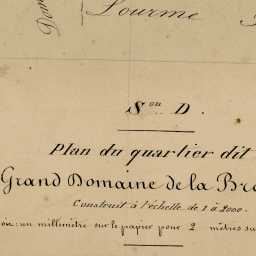 Dom
Lourme
Son D.
Plan du quartier dit
Grand Domaine de la Br
Construit à l'échelle de 1 à 2000.
on: un millimètre sur le papier pour 2 mètres su